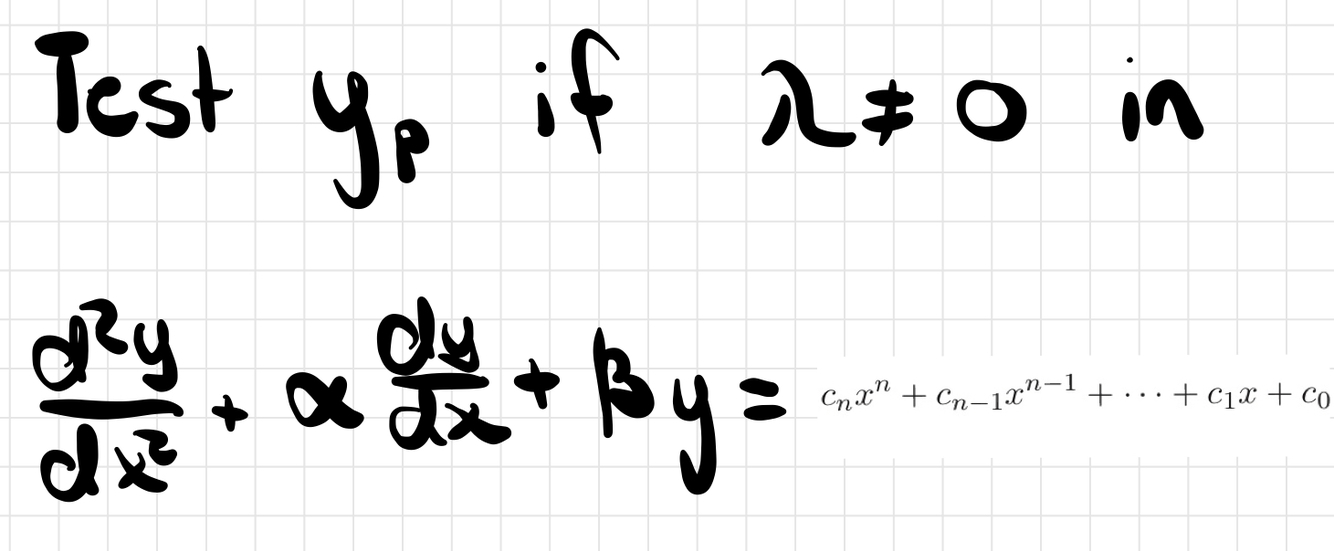 Test yₚ if λ ≠ 0 in
d²y/dx² + α dy/dx + βy = cₙxⁿ + cₙ₋₁xⁿ⁻¹ + ⋯ + c₁x + c₀